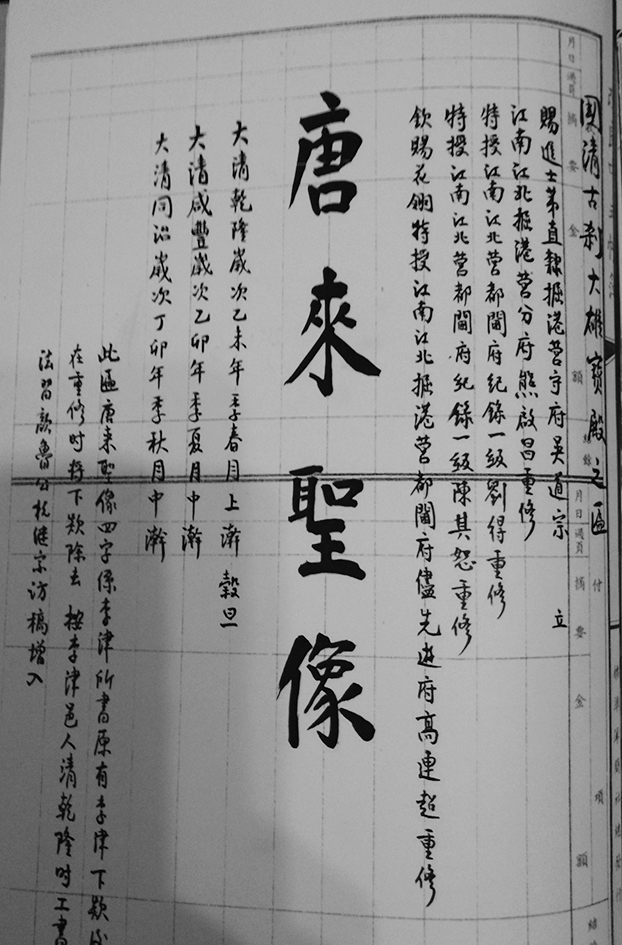 國清古刹大雄寶殿之匾
賜進士苐直隸掘港營守府吳道宗 立
江南江北掘港營分府熊啟昌重修
特授江南江北營都閫府紀錄一級劉得重修
特授江南江北營都閫府紀錄一級陳其恕重修
欽賜花翎特授江南江北掘港營都閫府儘先遊府高連超重修
唐來聖像
大清乾隆歲次乙未年季春月上澣 榖旦
大清咸豐歲次乙卯年季夏月中澣
大清同治歲次丁卯年季秋月中澣
此匾唐來聖像四字係李津所書原有李津下欵後
在重修时将下欵除去 按李津邑人清乾隆时工書
法習顏魯公杭健宗访稿增入
月日
過頁
摘要
金
額
月日
過頁
摘要
金
額
付
項